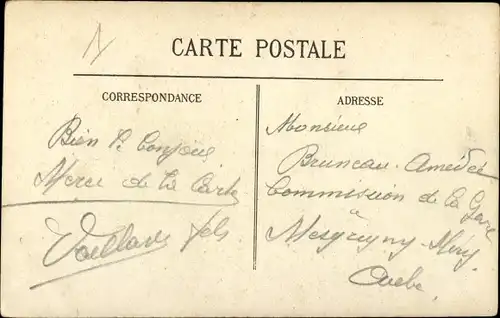 CARTE POSTALE
CORRESPONDANCE
Bien le bonjour
Merci de la Carte
Vaillant fils
ADRESSE
Monsieur
Bruneau Amedée
Commission de la Gare
à
Mesgrigny-Méry
Aube